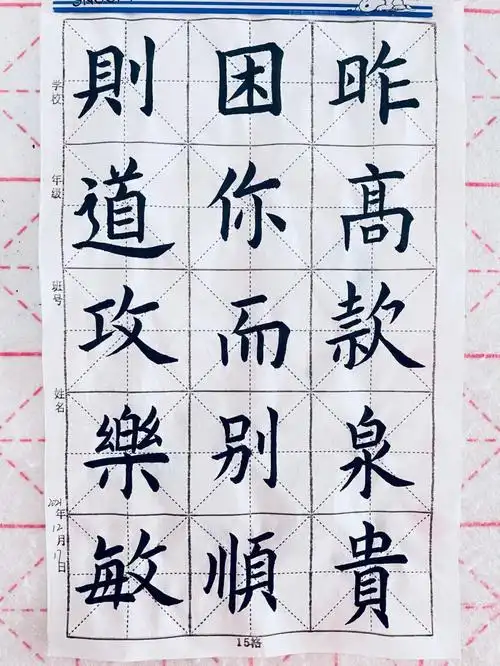 SNOOPY
昨髙款泉貴
困你而别順
則道攻樂敏
学校
年级
班号
姓名
2021年12月17日
15格